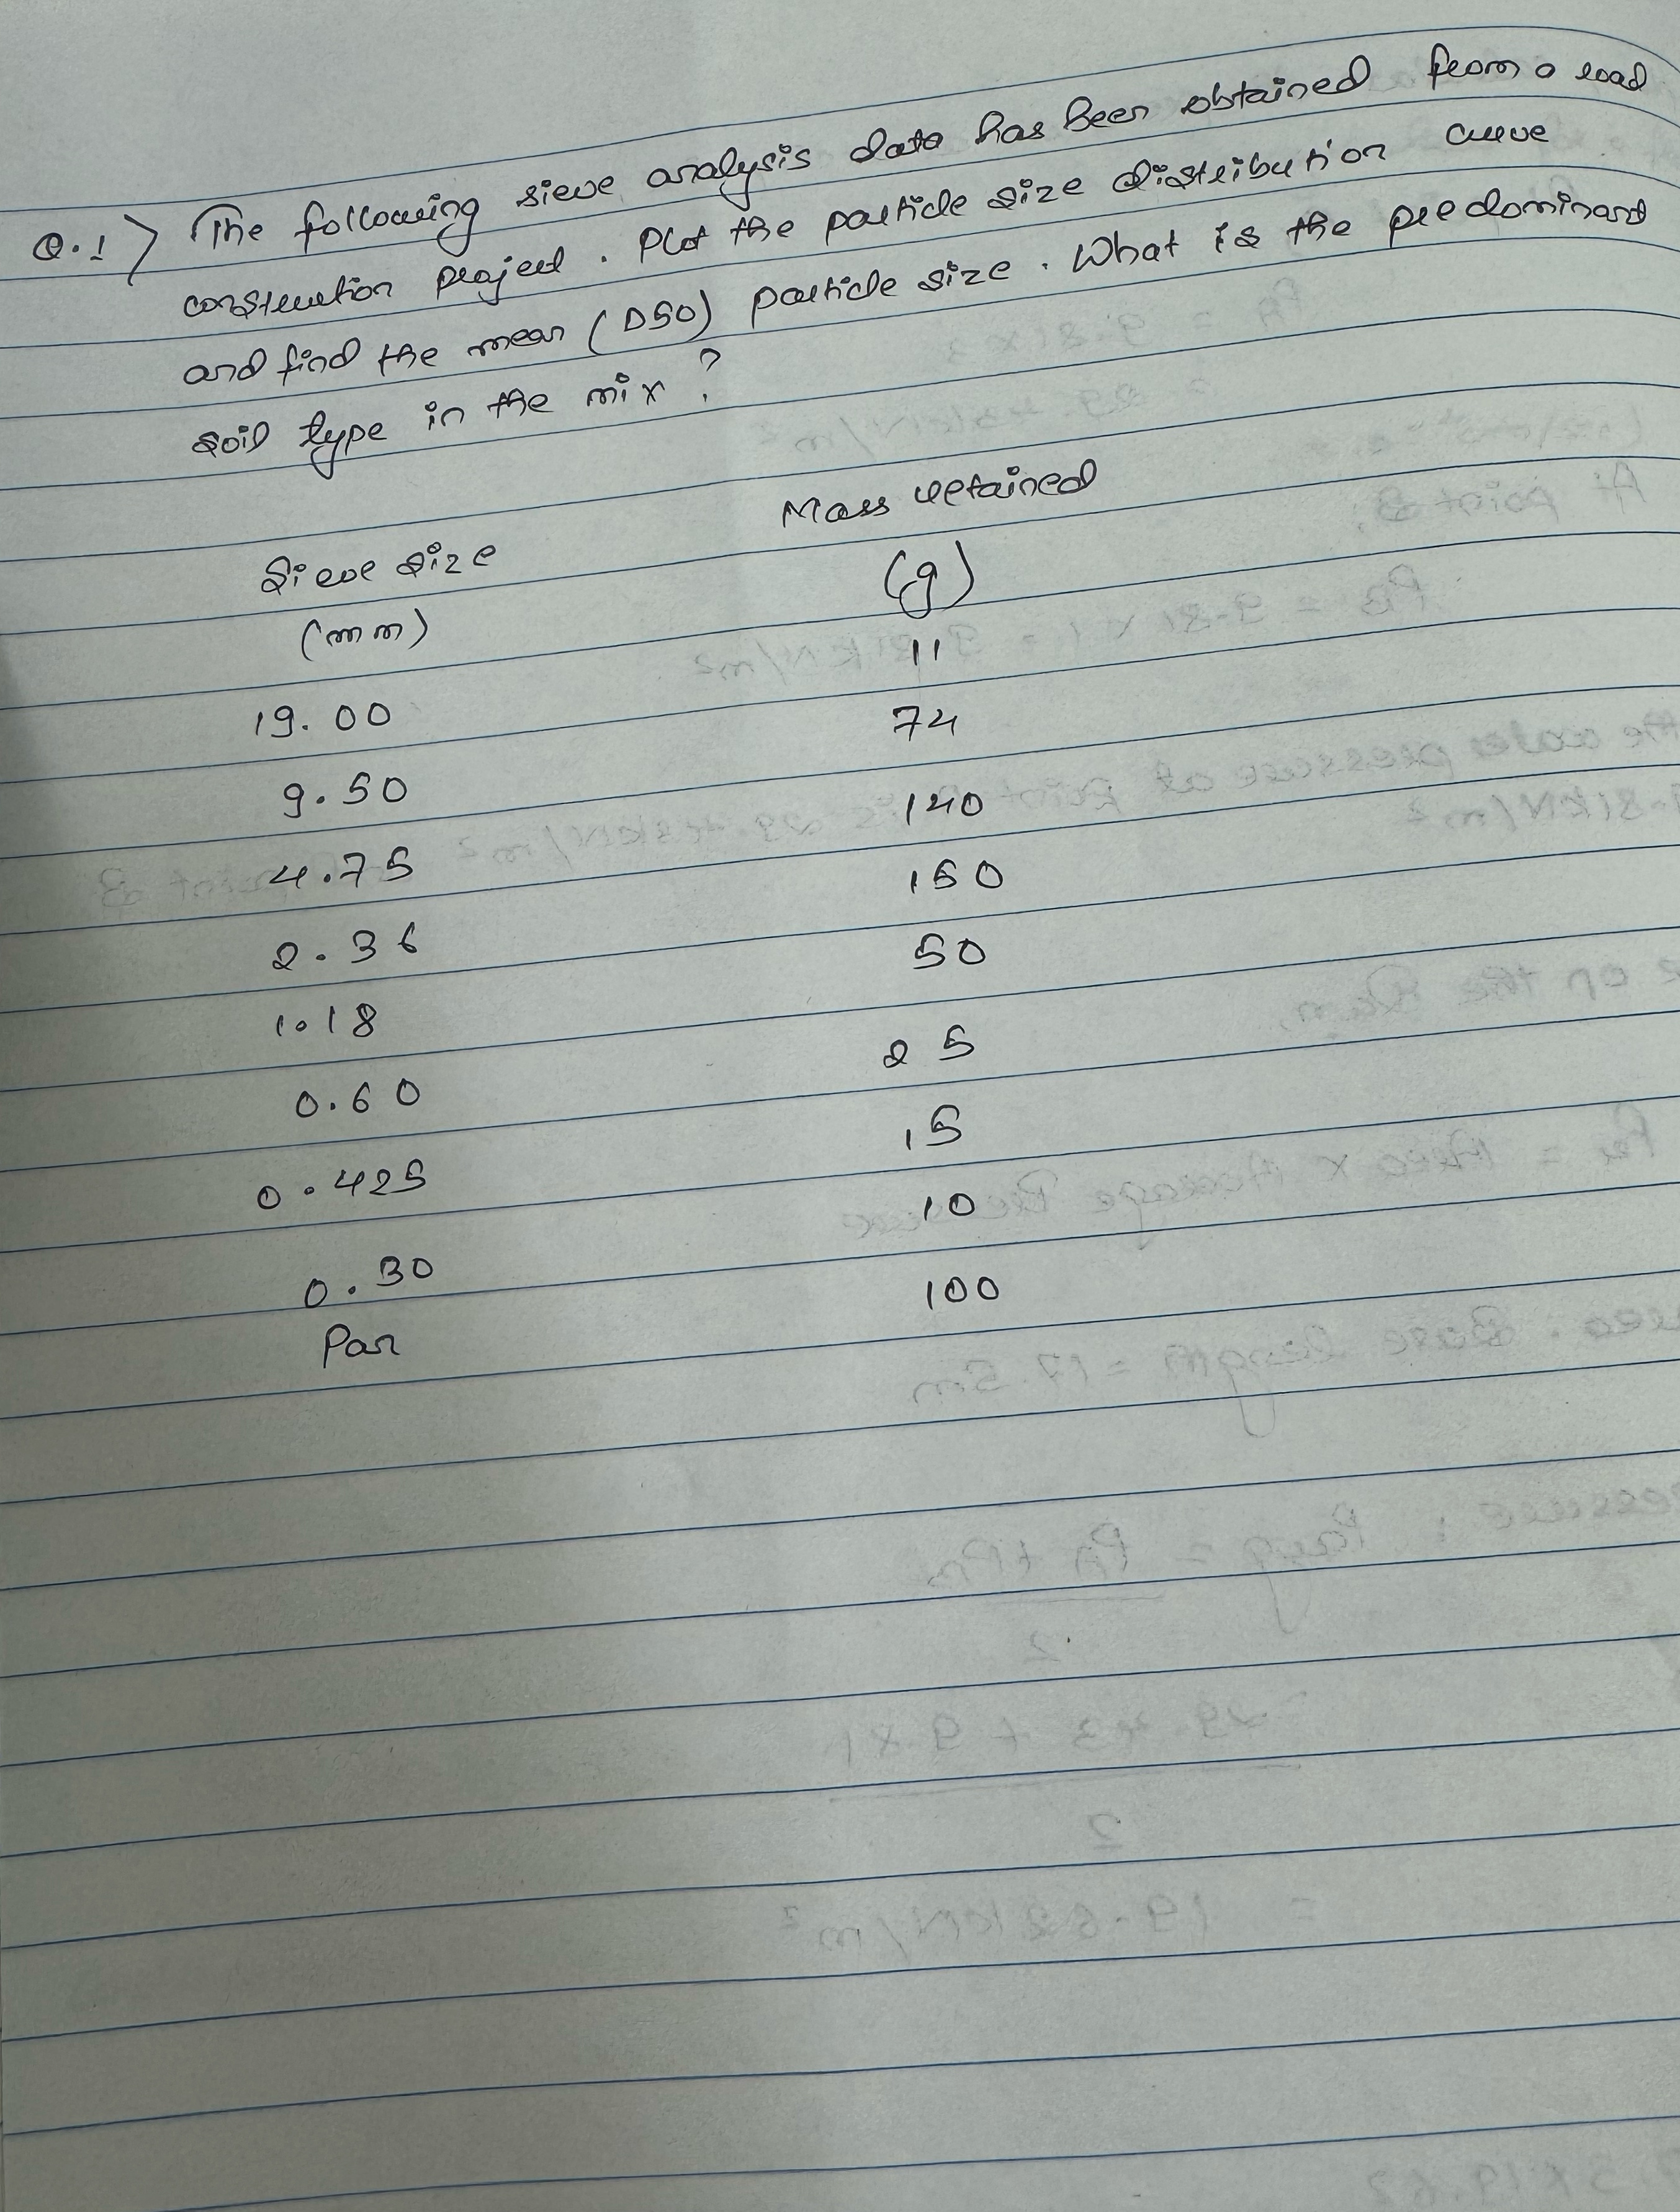 Q.1) The following sieve analysis data has been obtained from a road
construction project. Plot the particle size distribution curve
and find the mean (D50) particle size. What is the predominant
soil type in the mix?
Sieve size Mass retained
(mm) (g)
19.00 11
9.50 74
4.75 140
2.36 150
1.18 50
0.60 25
0.425 15
0.30 10
Pan 100